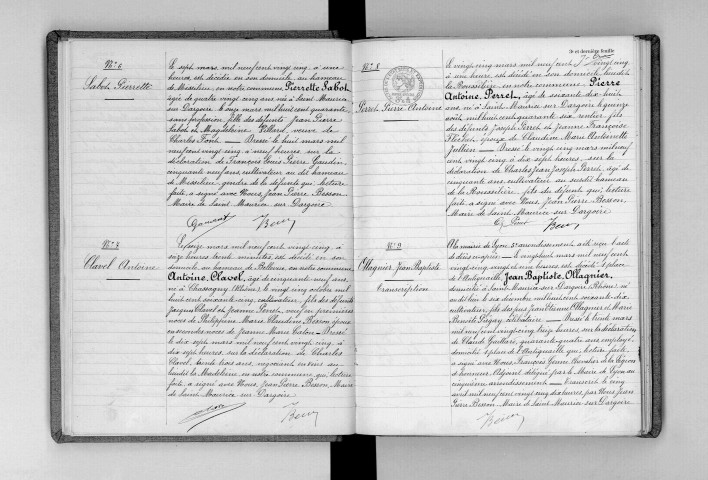 N° 6
Sabot Pierrette
Le sept mars mil neuf cent vingt cinq, à une
heure, est décédée en son domicile au hameau
de Messilieu, en notre commune, Pierrette Sabot,
âgée de quatre vingt cinq ans née à Saint Maurice
sur Dargoire le onze mars mil huit cent quarante
sans profession fille des défunts Jean Pierre
Sabot et Magdeleine Villard, veuve de
Charles Font — Dressé le huit mars mil
neuf cent vingt cinq à neuf heures, sur la
déclaration de François Louis Pierre Gaudin
cinquante neuf ans cultivateur au dit hameau
de Messilieu, gendre de la défunte qui, lecture
faite, a signé avec Nous, Jean Pierre Besson,
Maire de Saint Maurice sur Dargoire
N° 7
Clavel Antoine
Le seize mars mil neuf cent vingt cinq, à
onze heures trente minutes, est décédé en son
domicile au hameau de Bellevue, en notre commune
Antoine Clavel, âgé de cinquante neuf ans,
né à Chassagny (Rhône) le vingt cinq octobre mil
huit cent soixante cinq, cultivateur, fils des défunts
Jacques Clavel et Jeanne Perret, veuf en premières
noces de Philippine Marie Claudine Besson époux
en secondes noces de Jeanne Marie Calon — Dressé
le dix sept mars mil neuf cent vingt cinq à
dix sept heures, sur la déclaration de Charles
Clavel, trente trois ans, négociant en vins au
lieudit la Madeleine en notre commune qui, lecture
faite, a signé avec Nous, Jean Pierre Besson, Maire
de Saint Maurice sur Dargoire
3e et dernière feuille
N° 8
Perret Pierre Antoine
Le vingt cinq mars mil neuf cent vingt cinq
à une heure est décédé en son domicile lieudit
la Roussilière en notre commune Pierre
Antoine Perret, âgé de soixante dix huit
ans, né à Saint Maurice sur Dargoire le quinze
août mil huit cent quarante six, rentier, fils
des défunts Joseph Perret et Jeanne Françoise
époux de Claudine Marie Antoinette
Jullien — Dressé le vingt cinq mars mil neuf
cent vingt cinq à dix sept heures, sur la
déclaration de Charles Jean Joseph Perret, âgé de
cinquante ans cultivateur au susdit hameau
de la Roussilière, fils du défunt qui, lecture
faite a signé avec Nous, Jean Pierre Besson
Maire de Saint Maurice sur Dargoire
N° 9
Ollagnier Jean Baptiste
transcription
A la mairie de Lyon 5e arrondissement a été reçu l'acte
de décès ci après — Le vingt huit mars mil neuf cent
vingt cinq, vingt et une heures est décédé
de l'Antiquaille, Jean Baptiste Ollagnier,
domicilié à Saint Maurice sur Dargoire (Rhône) né
dix décembre mil huit cent soixante dix
cultivateur, fils des feus Jean Etienne Ollagnier et Marie
Benoîte célibataire — Dressé le trente mars
mil neuf cent vingt cinq treize heures, sur la déclaration
de Claude quarante quatre ans employé,
domicilié de l'Antiquaille qui, lecture faite,
a signé avec Nous, Chevalier de la Légion
d'honneur Adjoint délégué par le Maire de Lyon au
cinquième arrondissement — transcrit le cinq
avril mil neuf cent vingt cinq dix heures par Nous Jean
Pierre Besson Maire de Saint Maurice sur Dargoire